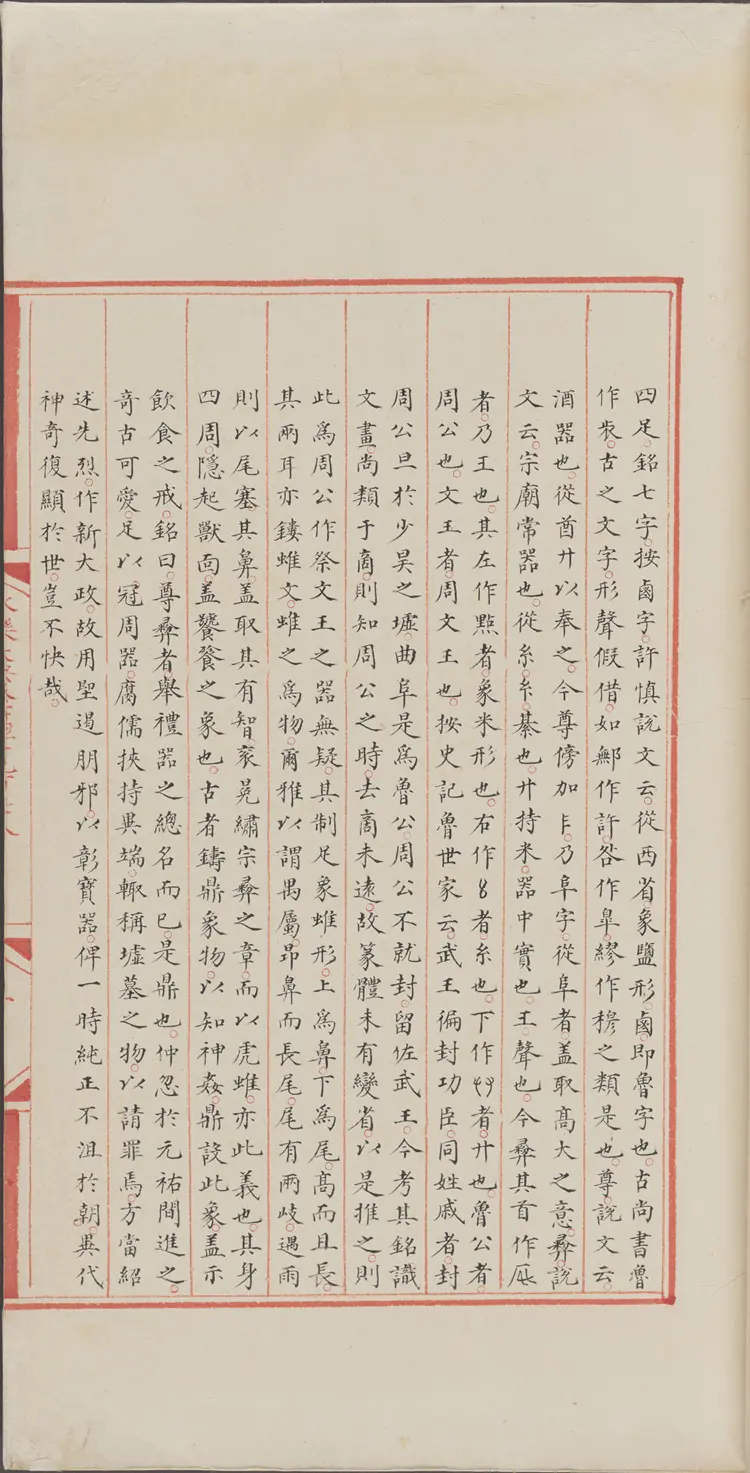 四足。銘七字。按鹵字。許慎說文云。從西省象鹽形。鹵即魯字也。古尚書魯
作𣥐。古之文字。形聲假借。如鄦作許。咎作皐。繆作穆之類是也。尊。說文云。
酒器也。從酋廾以奉之。今尊傍加𨸏。乃阜字。從阜者。盖取髙大之意。彛。說
文云。宗廟常器也。從糸。糸。綦也。廾持米。器中實也。彑聲也。今彛其首作
者。乃王也。其左作㸃者。象米形也。右作者。糸也。下作者。廾也。魯公者。
周公也。文王者。周文王也。按史記魯世家云。武王徧封功臣。同姓戚者。封
周公旦於少昊之墟。曲阜是爲魯公。周公不就封。留佐武王。今考其銘識
文畫。尚類于啇。則知周公之時。去啇未遠。故篆體未有變省。以是推之。則
此爲周公作祭文王之器無疑。其制足象蜼形。上爲鼻。下爲尾。髙而且長。
其兩耳亦鏤蜼文。蜼之爲物。爾雅以謂禺屬。昂鼻而長尾。尾有兩歧。遇雨
則以尾塞其鼻。盖取其有智。衮冕繡宗彛之章。而以虎蜼。亦此義也。其身
四周。隱起獸面。盖饕餮之象也。古者鑄鼎象物。以知神姦。鼎設此象。盖示
飲食之戒。銘曰。尊彛者。舉禮器之總名而已。是鼎也。仲忽於元祐間進之。
竒古可愛。足以冠周器。腐儒挾持異端。輙稱墟墓之物。以請罪焉。方當紹
述先烈。作新大政。故用聖遏朋邪。以彰寳器。俾一時純正不沮於朝。異代
神竒復顯於世。豈不快哉。